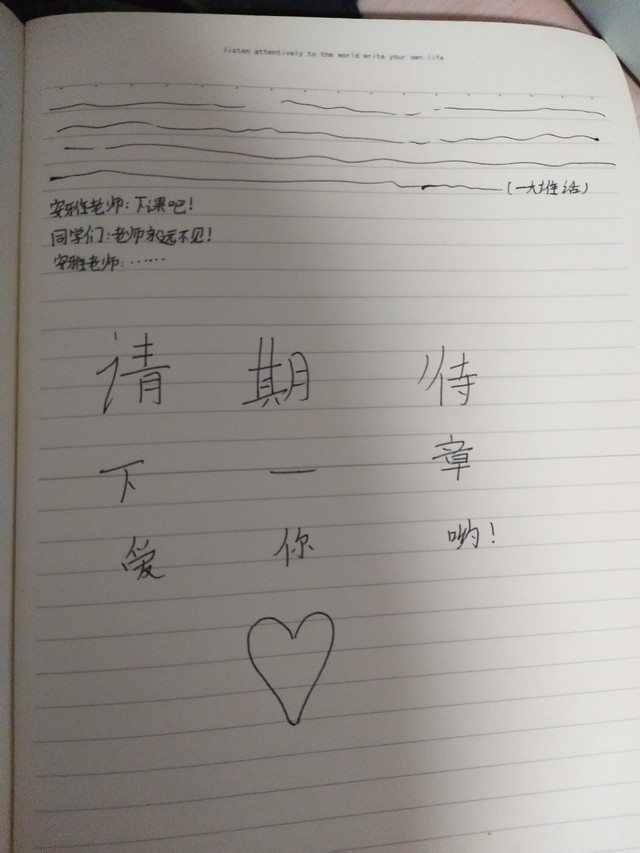 listen attentively to the world write your own life
(一大堆话)
安雅老师:下课吧!
同学们:老师永远不见!
安雅老师:……
请期待
下一章
爱你哟!